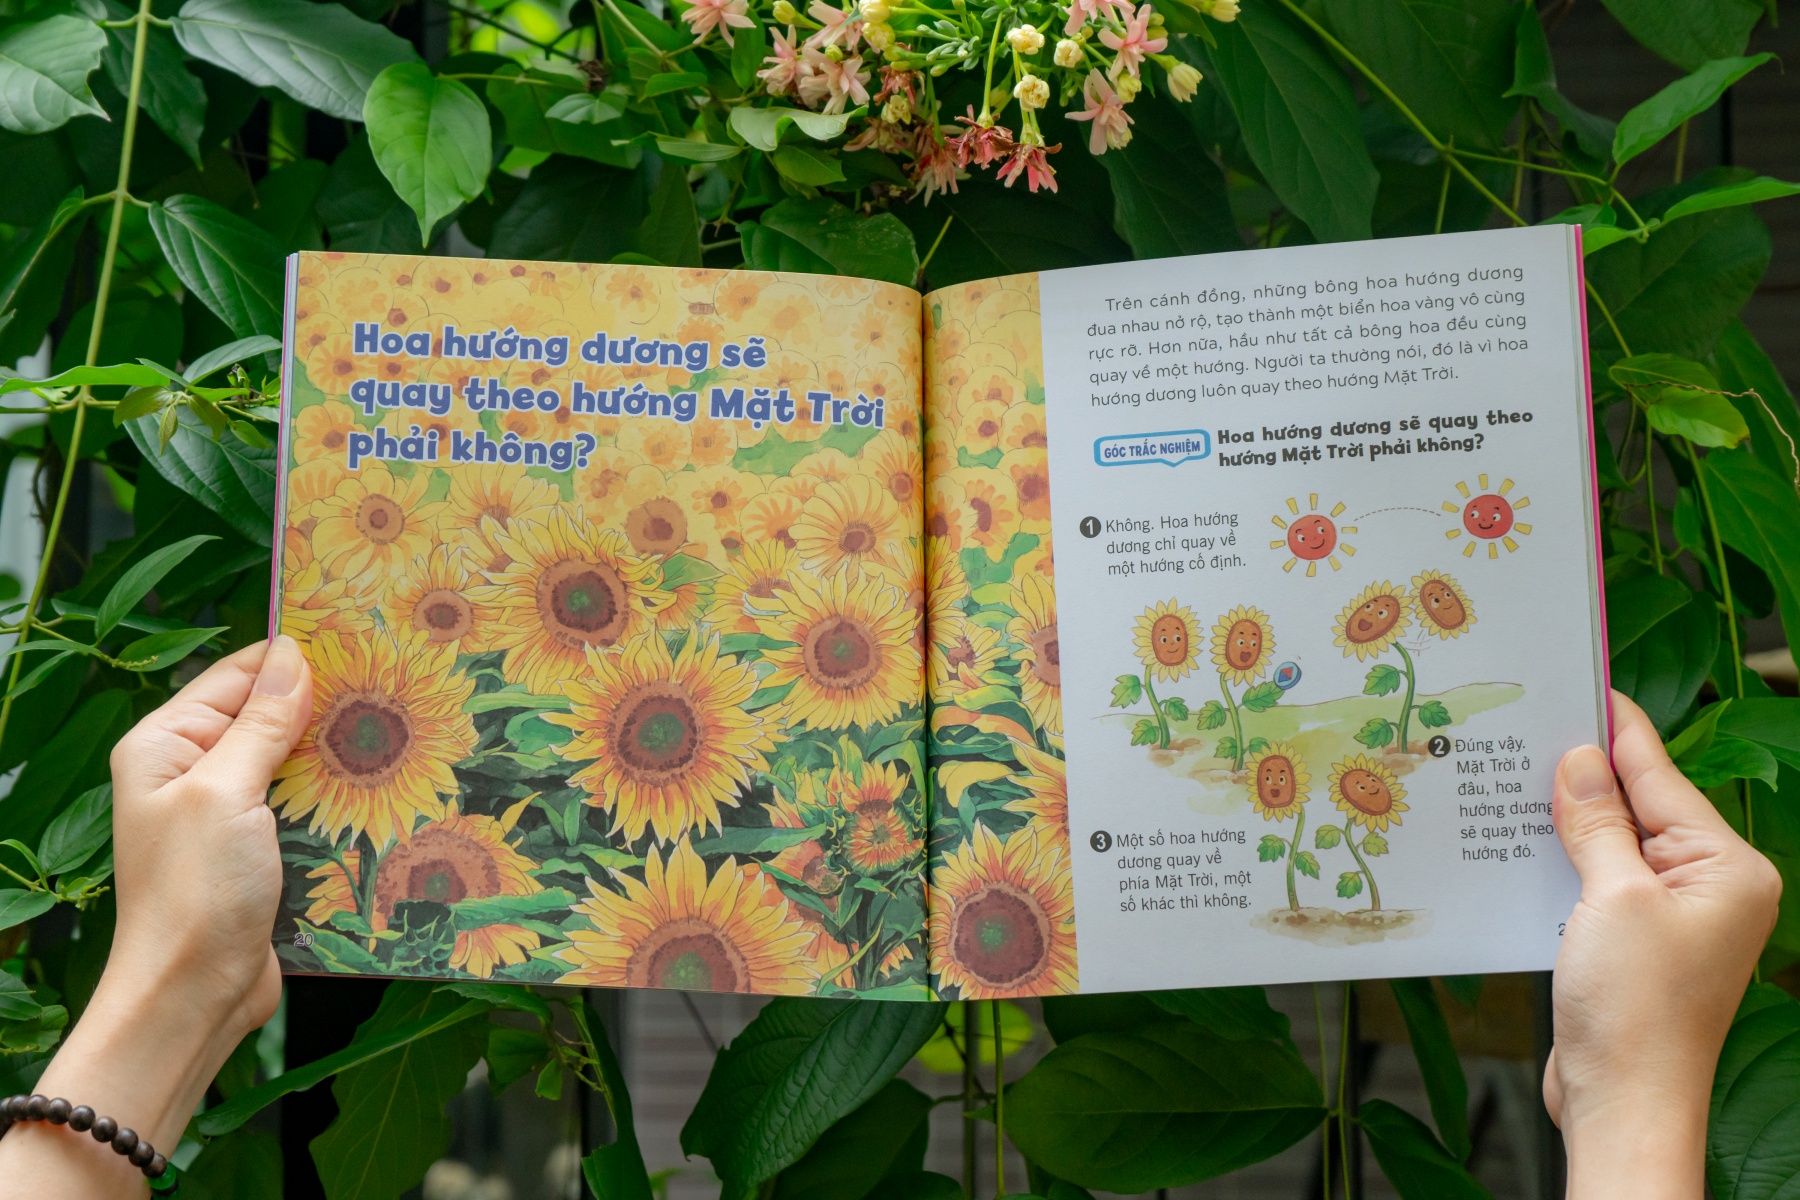 Hoa hướng dương sẽ
quay theo hướng Mặt Trời
phải không?
20
Trên cánh đồng, những bông hoa hướng dương
đua nhau nở rộ, tạo thành một biển hoa vàng vô cùng
rực rỡ. Hơn nữa, hầu như tất cả bông hoa đều cùng
quay về một hướng. Người ta thường nói, đó là vì hoa
hướng dương luôn quay theo hướng Mặt Trời.
GÓC TRẮC NGHIỆM
Hoa hướng dương sẽ quay theo
hướng Mặt Trời phải không?
1 Không. Hoa hướng
dương chỉ quay về
một hướng cố định.
2 Đúng vậy.
Mặt Trời ở
đâu, hoa
hướng dương
sẽ quay theo
hướng đó.
3 Một số hoa hướng
dương quay về
phía Mặt Trời, một
số khác thì không.